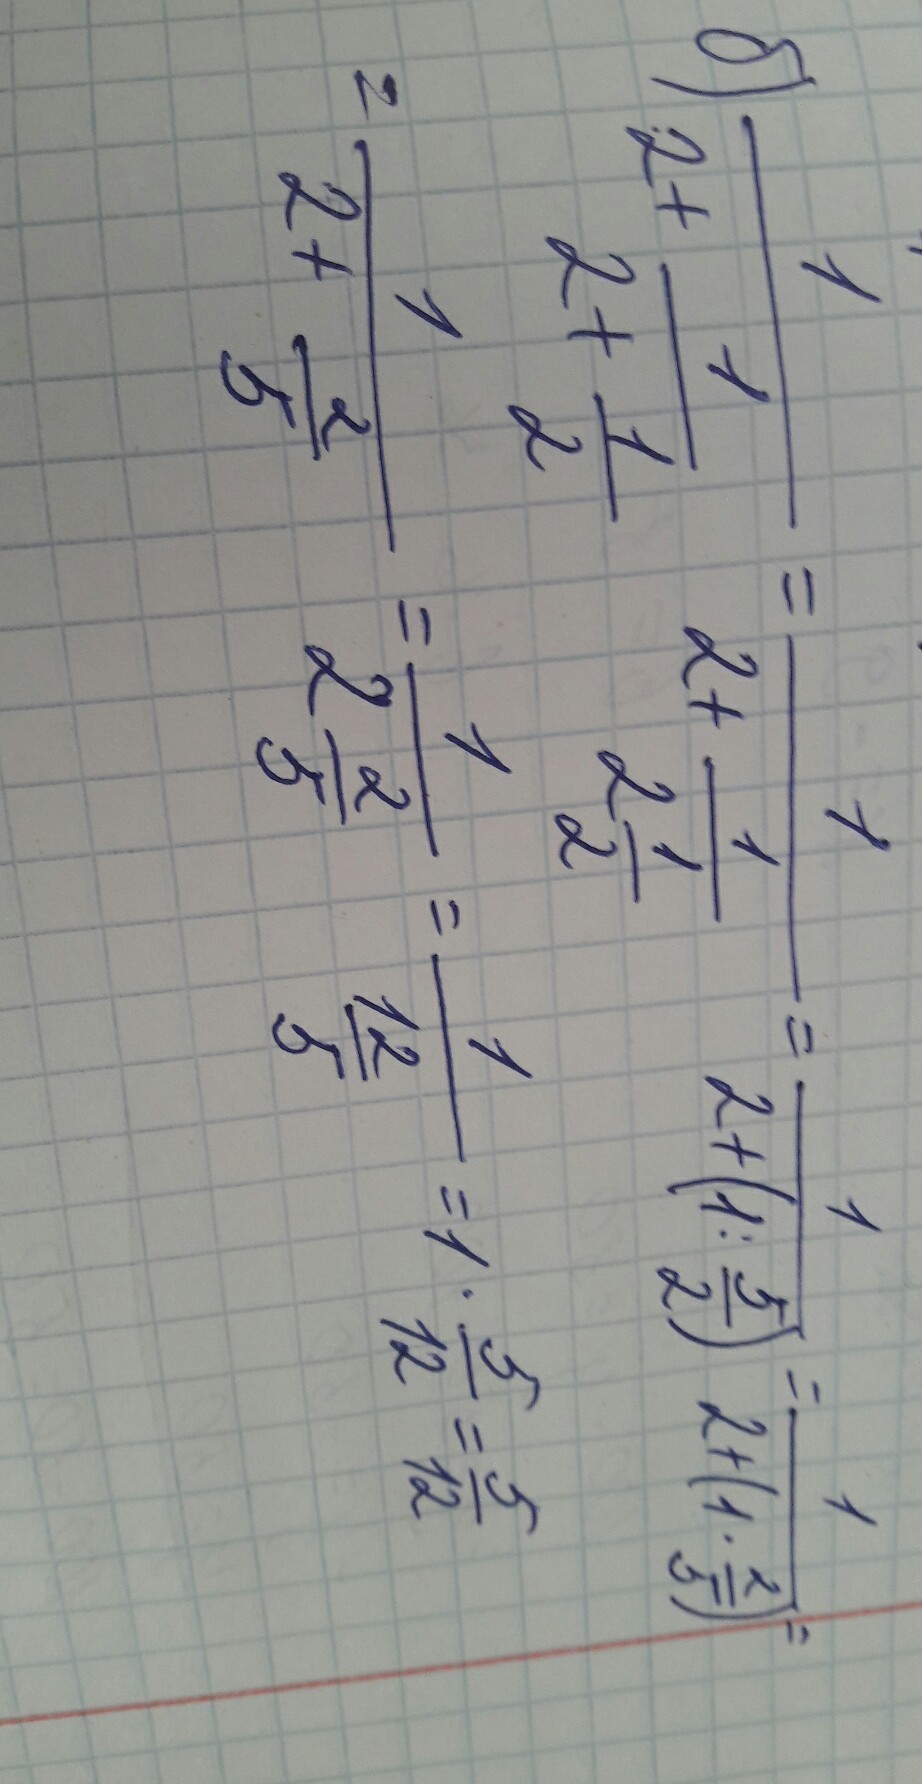 б) 1/(2+1/(2+1/2)) = 1/(2+1/(2 1/2)) = 1/(2+(1:5/2)) = 1/(2+(1·2/5)) =
= 1/(2+2/5) = 1/(2 2/5) = 1/(12/5) = 1·5/12 = 5/12